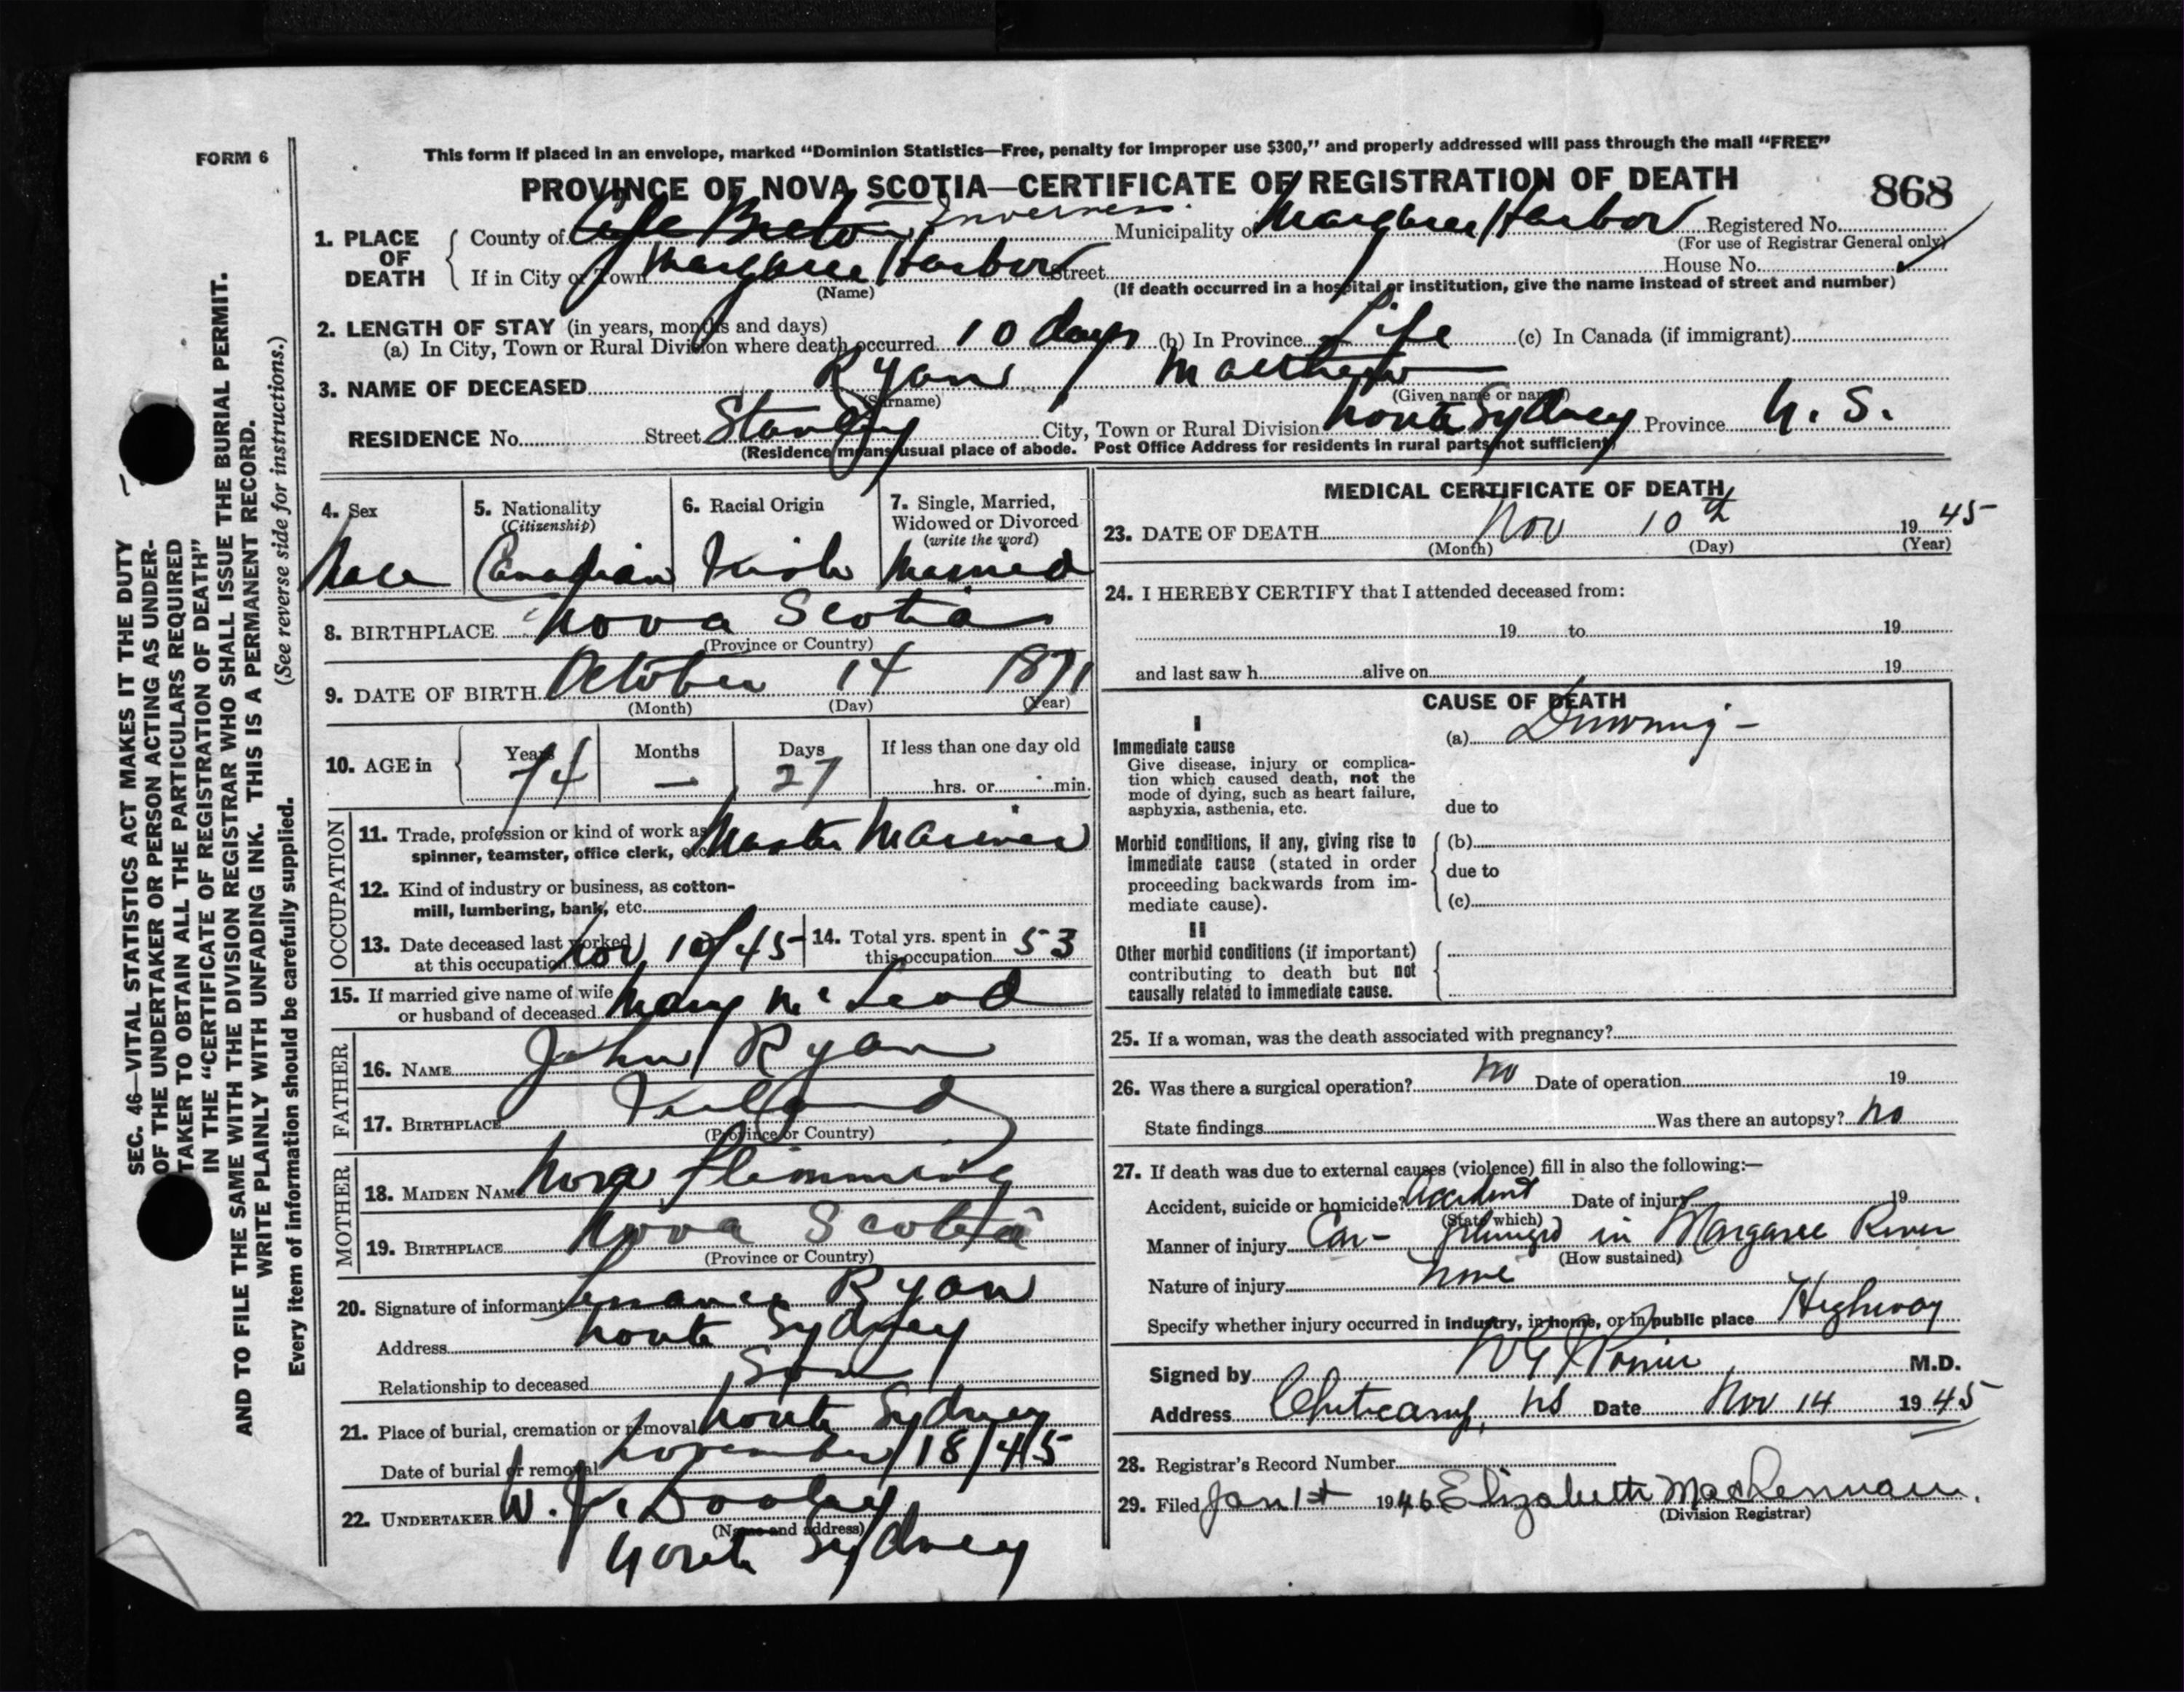 FORM 6
This form if placed in an envelope, marked “Dominion Statistics—Free, penalty for improper use $300,” and properly addressed will pass through the mail “FREE”
PROVINCE OF NOVA SCOTIA—CERTIFICATE OF REGISTRATION OF DEATH
868
1. PLACE OF DEATH
County of Cape Breton Inverness Municipality of Margaree Harbor Registered No.
(For use of Registrar General only)
If in City or Town Margaree Harbor Street House No.
(Name) (If death occurred in a hospital or institution, give the name instead of street and number)
2. LENGTH OF STAY (in years, months and days)
(a) In City, Town or Rural Division where death occurred 10 days (b) In Province Life (c) In Canada (if immigrant)
3. NAME OF DECEASED Ryan Matthew
(Surname) (Given name or names)
RESIDENCE No. Street Stanley City, Town or Rural Division North Sydney Province N. S.
(Residence means usual place of abode. Post Office Address for residents in rural parts not sufficient)
4. Sex
Male
5. Nationality
(Citizenship)
Canadian
6. Racial Origin
Irish
7. Single, Married,
Widowed or Divorced
(write the word)
Married
8. BIRTHPLACE Nova Scotia
(Province or Country)
9. DATE OF BIRTH October 14 1871
(Month) (Day) (Year)
10. AGE in
Years Months Days If less than one day old
74 — 27 hrs. or min.
OCCUPATION
11. Trade, profession or kind of work as Master Mariner
spinner, teamster, office clerk, etc.
12. Kind of industry or business, as cotton-
mill, lumbering, bank, etc.
13. Date deceased last worked
at this occupation Nov 10/45
14. Total yrs. spent in
this occupation 53
15. If married give name of wife
or husband of deceased Mary McLeod
FATHER
16. NAME John Ryan
17. BIRTHPLACE Ireland
(Province or Country)
MOTHER
18. MAIDEN NAME Nora Flemming
19. BIRTHPLACE Nova Scotia
(Province or Country)
20. Signature of informant Ryan
Address North Sydney
Relationship to deceased Son
21. Place of burial, cremation or removal North Sydney
Date of burial or removal November 18/45
22. UNDERTAKER W. J. Dooley
(Name and address)
North Sydney
MEDICAL CERTIFICATE OF DEATH
23. DATE OF DEATH Nov 10th 19 45
(Month) (Day) (Year)
24. I HEREBY CERTIFY that I attended deceased from:
19 to 19
and last saw h alive on 19
CAUSE OF DEATH
I
Immediate cause
Give disease, injury or complica-
tion which caused death, not the
mode of dying, such as heart failure,
asphyxia, asthenia, etc.
(a) Drowning -
due to
Morbid conditions, if any, giving rise to
immediate cause (stated in order
proceeding backwards from im-
mediate cause).
(b)
due to
(c)
II
Other morbid conditions (if important)
contributing to death but not
causally related to immediate cause.
25. If a woman, was the death associated with pregnancy?
26. Was there a surgical operation? No Date of operation 19
State findings Was there an autopsy? No
27. If death was due to external causes (violence) fill in also the following:—
Accident, suicide or homicide? Accident Date of injury 19
(State which)
Manner of injury Car - plunged in Margaree River
(How sustained)
Nature of injury None
Specify whether injury occurred in industry, in home, or in public place Highway
Signed by M.D.
Address Cheticamp, NS Date Nov 14 19 45
28. Registrar's Record Number
29. Filed Jan 1st 1946 Elizabeth MacLennan.
(Division Registrar)
SEC. 46—VITAL STATISTICS ACT MAKES IT THE DUTY
OF THE UNDERTAKER OR PERSON ACTING AS UNDER-
TAKER TO OBTAIN ALL THE PARTICULARS REQUIRED
IN THE “CERTIFICATE OF REGISTRATION OF DEATH”
AND TO FILE THE SAME WITH THE DIVISION REGISTRAR WHO SHALL ISSUE THE BURIAL PERMIT.
WRITE PLAINLY WITH UNFADING INK. THIS IS A PERMANENT RECORD.
Every item of information should be carefully supplied. (See reverse side for instructions.)